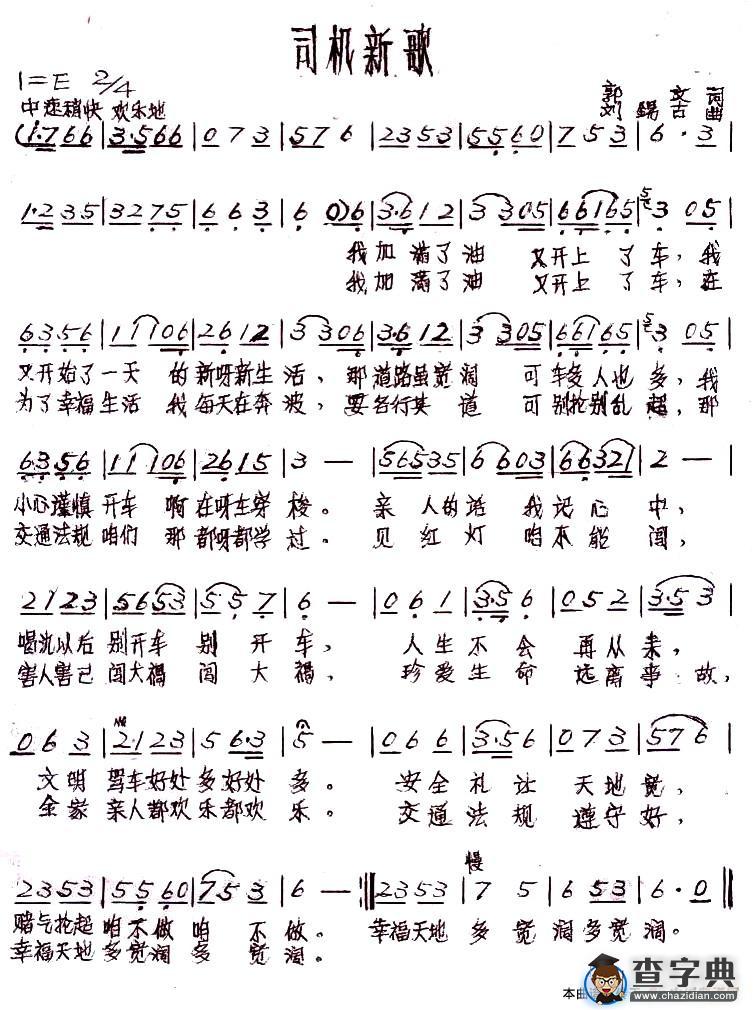 司机新歌
1=E 2/4
中速稍快 欢乐地
郭文词
刘锡古曲
(1·766 | 3·566 | 073 | 576 | 2353 | 5560 | 753 | 6·3
1·235 | 3275 | 663 | 6 0)6 | 3·612 | 3 305 | 66165 | 3 05 |
我加满了油 又开上了车，我
我加满了油 又开上了车，在
6356 | 11106 | 2612 | 3 306 | 3·612 | 3 305 | 66165 | 3 05 |
又开始了一天 的新呀新生活，那道路虽宽阔 可车多人也多，我
为了幸福生活 我每天在奔波，要各行其道 可别抢别乱超，那
6356 | 11106 | 2615 | 3 — | 56535 | 6 603 | 66321 | 2 — |
小心谨慎开车 啊在呀在穿梭。亲人的话 我记心中，
交通法规咱们 那都呀都学过。见红灯 咱不能闯，
2123 | 5653 | 55 7 | 6 — | 061 | 3·56 | 052 | 3·53 |
喝洗以后别开车 别开车，人生不会再从来，
害人害己闯大祸 闯大祸，珍爱生命远离事故，
063 | 2·123 | 56·3 | 5 — | 066 | 3·56 | 073 | 576 |
文明驾车好处多好处多。安全礼让天地宽，
全家亲人都欢乐都欢乐。交通法规遵守好，
慢
2353 | 5560 | 753 | 6 — :|| 2353 | 7 5 | 6 53 | 6·0 ||
赌气抢超咱不做咱不做。幸福天地多宽阔多宽阔。
幸福天地多宽阔多宽阔。
本曲谱
查字典
www.chazidian.com